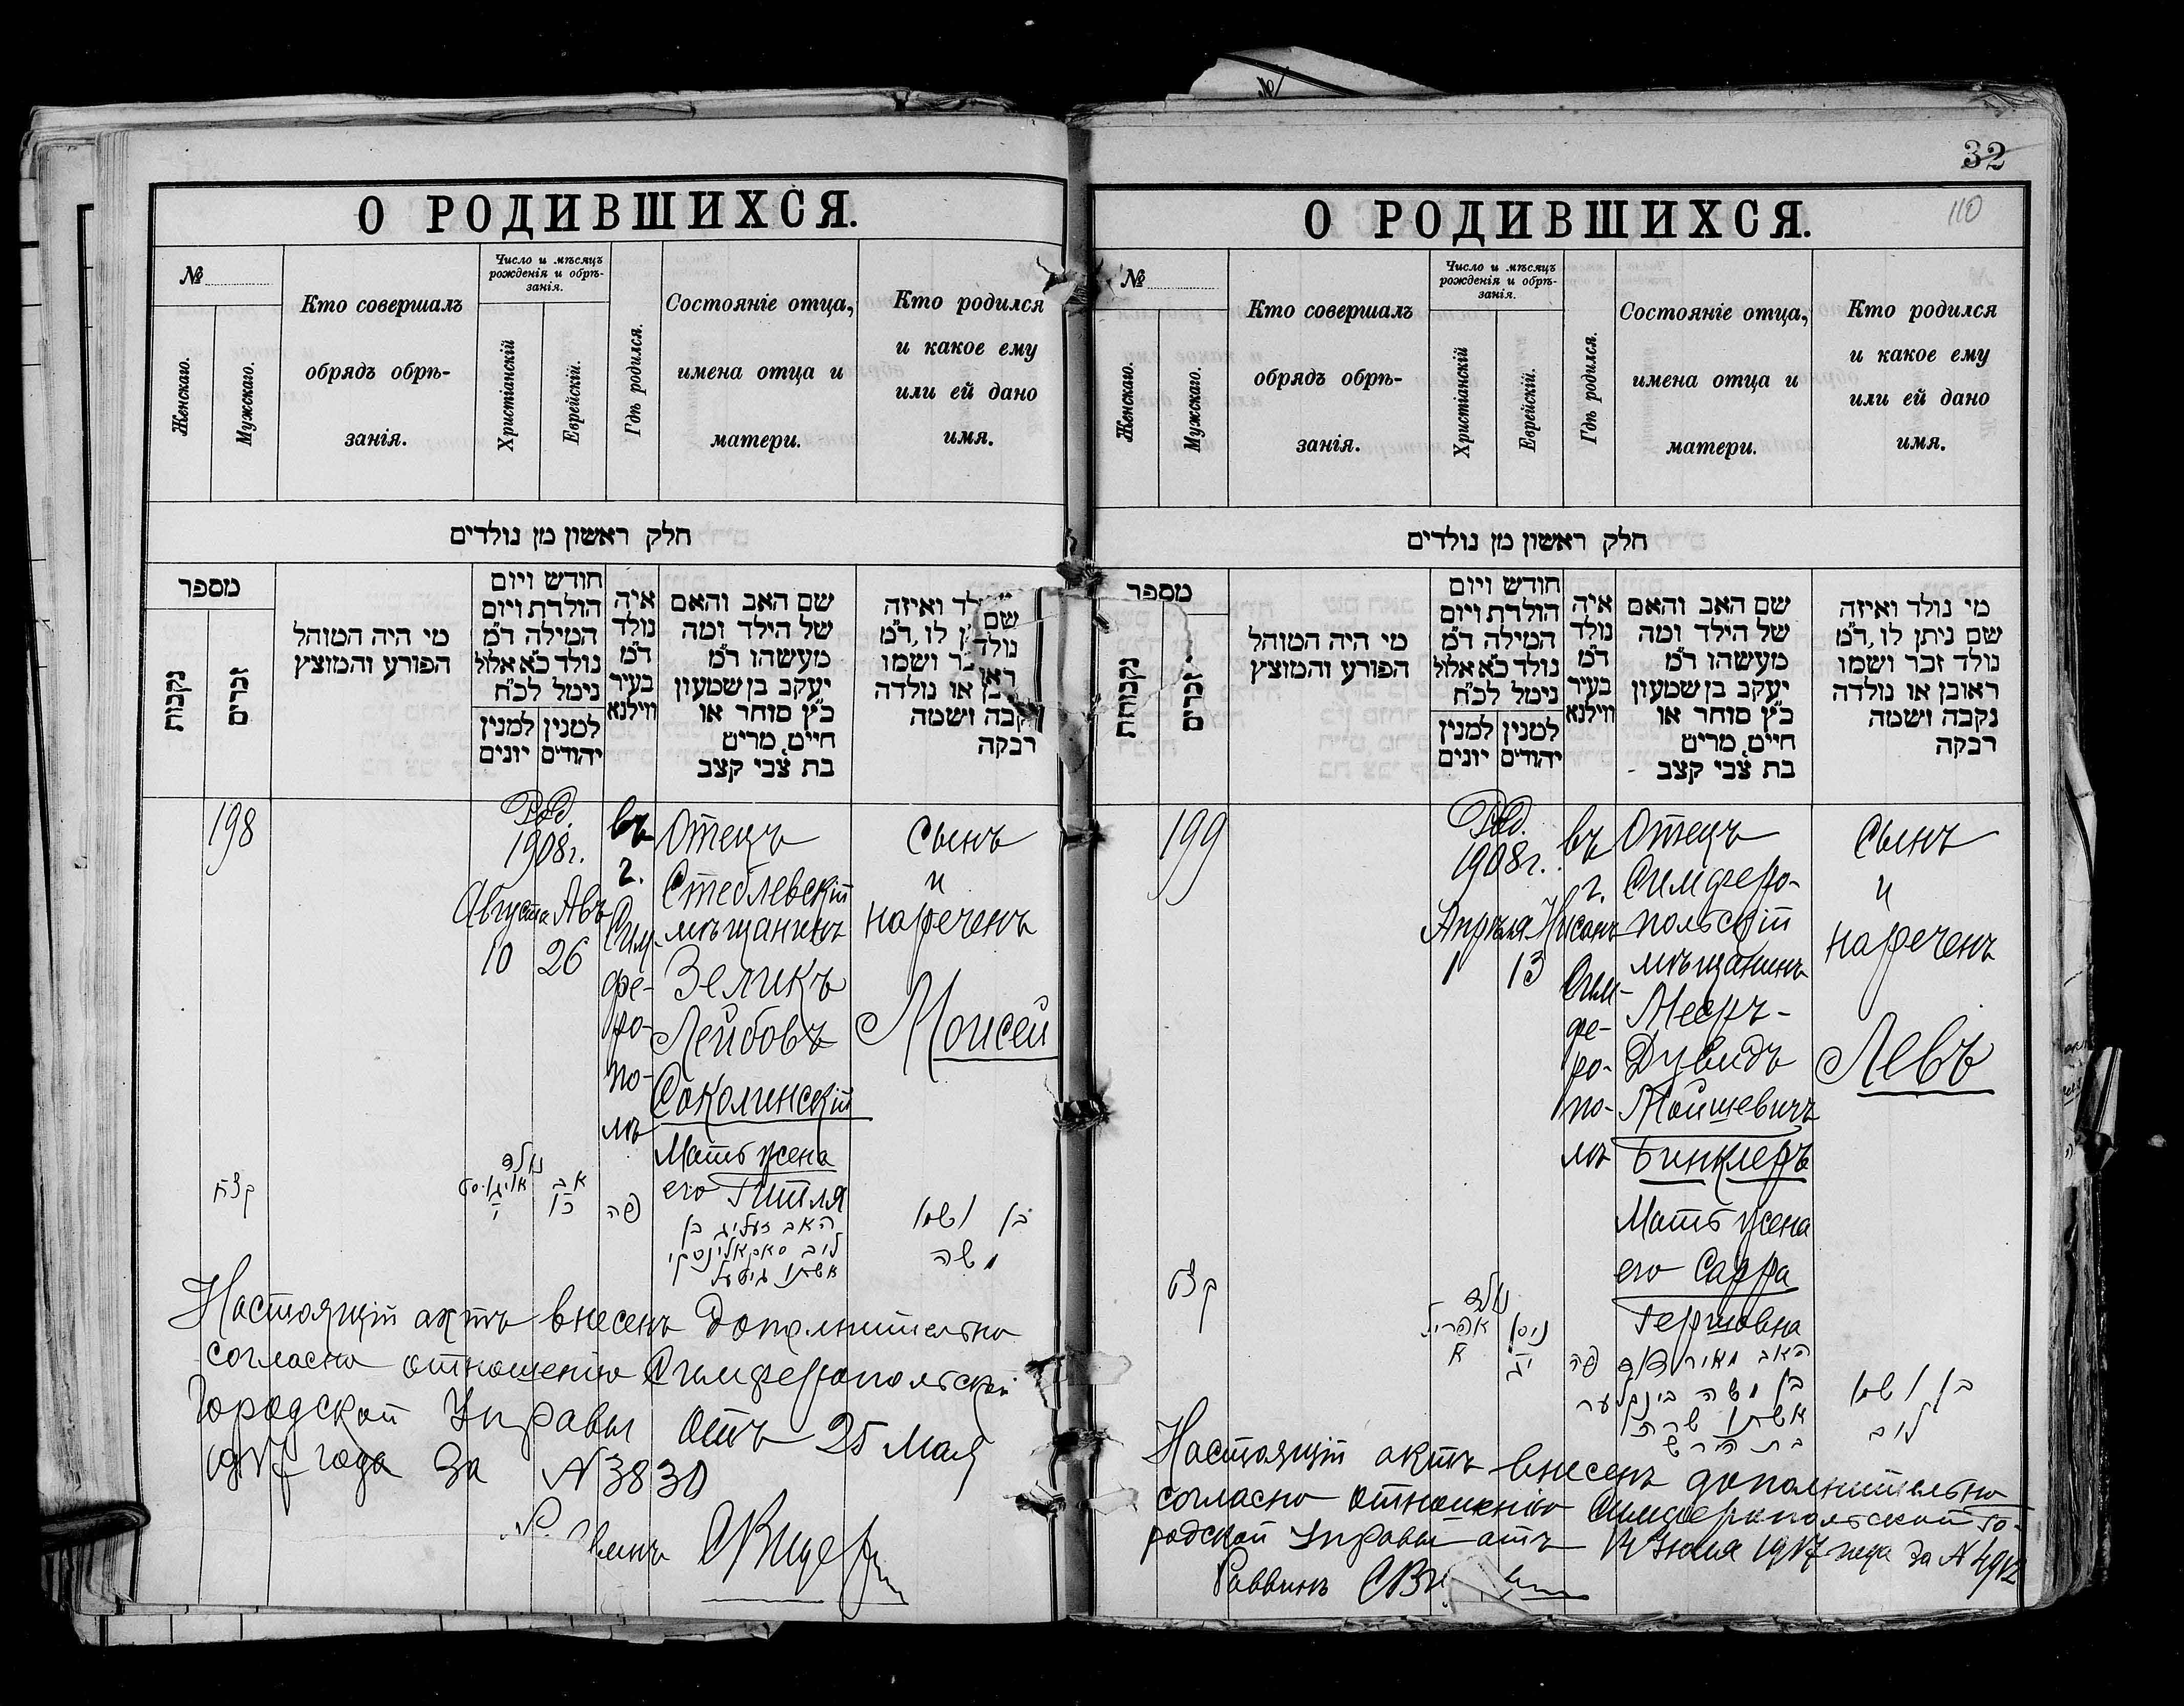 О РОДИВШИХСЯ.
№
Женскаго.
Мужскаго.
Кто совершалъ
обрядъ обрѣ-
занія.
Число и мѣсяцъ
рожденія и обрѣ-
занія.
Христіанскій
Еврейскій.
Гдѣ родился.
Состояніе отца,
имена отца и
матери.
Кто родился
и какое ему
или ей дано
имя.
חלק ראשון מן נולדים
מספר
נקבות
זכרים
מי היה המוהל
הפורע והמוצץ
חודש ויום
הולדת ויום
המילה ד״מ
נולד כ״א אלול
נימל לכ״ח
למנין יהודים
למנין יונים
איה
נולד
ד״מ
בעיר
ווילנא
שם האב והאם
של הילד ומה
מעשהו ד״מ
יעקב בן שמעון
כ״ץ סוחר או
חייט, מרים
בת צבי קצב
ואיזה
שם לו, ד״מ
נולד ושמו
או נולדה
ושמה
רבקה
198
Род.
1908 г.
Августа Авъ
10 26
въ
г.
Сим-
фе-
ро-
по-
лѣ
Отецъ
Стеблевскій
мѣщанинъ
Зеликъ
Лейбовъ
Соколинскій
Мать жена
его Гитля
Сынъ
и
нареченъ
Моисей
קצח
נולד
אויגוסט
י
אב
כו
פה
האב זעליג בן
לוב סאקאלינסקי
אשתו גיטעל
בן ושמו
משה
Настоящій актъ внесенъ дополнительно
согласно отношенію Симферопольской
Городской Управы отъ 25 Мая
1917 года за N 3830
32
110
О РОДИВШИХСЯ.
№
Женскаго.
Мужскаго.
Кто совершалъ
обрядъ обрѣ-
занія.
Число и мѣсяцъ
рожденія и обрѣ-
занія.
Христіанскій
Еврейскій.
Гдѣ родился.
Состояніе отца,
имена отца и
матери.
Кто родился
и какое ему
или ей дано
имя.
חלק ראשון מן נולדים
מספר
נקבות
זכרים
מי היה המוהל
הפורע והמוצץ
חודש ויום
הולדת ויום
המילה ד״מ
נולד כ״א אלול
נימל לכ״ח
למנין יהודים
למנין יונים
איה
נולד
ד״מ
בעיר
ווילנא
שם האב והאם
של הילד ומה
מעשהו ד״מ
יעקב בן שמעון
כ״ץ סוחר או
חייט, מרים
בת צבי קצב
מי נולד ואיזה
שם ניתן לו, ד״מ
נולד זכר ושמו
ראובן או נולדה
נקבה ושמה
רבקה
199
Род.
1908 г.
Апрѣля Нисанъ
1 13
въ
г.
Сим-
фе-
ро-
по-
лѣ
Отецъ
Симферо-
польскій
мѣщанинъ
Мееръ-
Дувидъ
Мойшевичъ
Бинклеръ
Мать жена
его Сарра
Гершовна
Сынъ
и
нареченъ
Левъ
קצט
נולד
אפריל
א
ניסן
יג
פה
האב מאיר דוד
בן משה בינקלער
אשתו שרה
בת הירש
בן ושמו
לוב
Настоящій актъ внесенъ дополнительно
согласно отношенію Симферопольской Го-
родской Управы отъ 14 Июня 1917 года за N 4912
Раввинъ